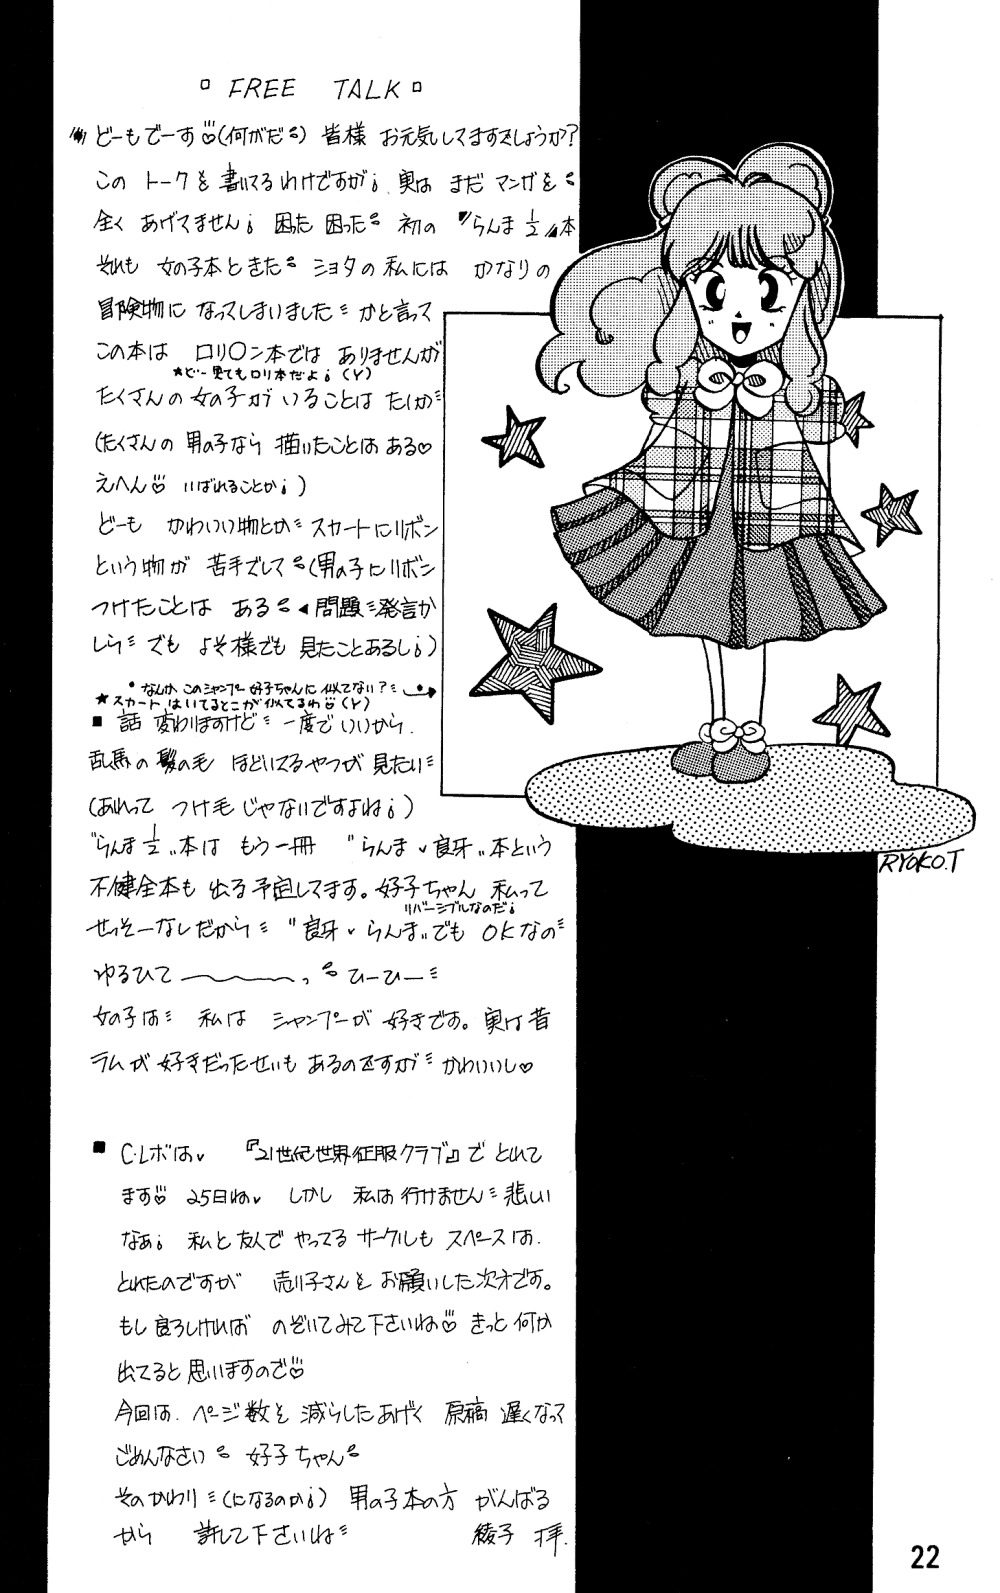 FREE TALK
どーもでーす♡(何がだ) 皆様 お元気してますでしょうか?
この トークを 書いてるわけですが¡ 実は まだ マンガを
全く あげてません¡ 困った 困った 初の "らんま½"本
それも 女の子本ときた ショタの私には かなりの
冒険物に なってしまいました かと言って
この本は ロリ〇ン本では ありませんが
★どー見てもロリ本だよ¡(Y)
たくさんの 女の子が いることは たしか
(たくさんの 男の子なら 描いたことはある♡
えへん♡ いばれることか¡)
どーも かわいい物とか スカートにリボン
という物が 苦手でして (男の子にリボン
つけたことは ある ◀問題発言か
しら でも よそ様でも 見たことあるし¡)
・なんか このシャンプー 好子ちゃんに 似てない?
★スカート はいてるとこが似てるわ♡(Y)
■ 話 変わりますけど 一度でいいから
乱馬の 髪の毛 ほどいてるやつが 見たい
(あれって つけ毛じゃないですよね¡)
"らんま½"本は もう一冊 "らんま♥良牙"本という
不健全本も 出る予定してます。好子ちゃん 私って
リバーシブルなのだ¡
せっそーなしだから "良牙♥らんま"でも OKなの
ゆるひて〜〜〜っ ひーひー
女の子は 私は シャンプーが 好きです。実は昔
ラムが 好きだったせいも あるのですが かわいいし♡
■ C・レボは♥ 『21世紀世界征服クラブ』で とれて
ます♡ 25日ね♥ しかし 私は 行けません 悲しい
なぁ¡ 私と友人で やってる サークルも スペースは
とれたのですが 売り子さんを お願いした次才です。
もし 良ろしければ のぞいてみて下さいね♡ きっと 何か
出てると 思いますので♡
今回は ページ数を 減らしたあげく 原稿 遅くなって
ごめんなさい 好子ちゃん
そのかわり (になるのか¡) 男の子本の方 がんばる
から 許して下さいね 綾子 拝.
RYOKO.T
22